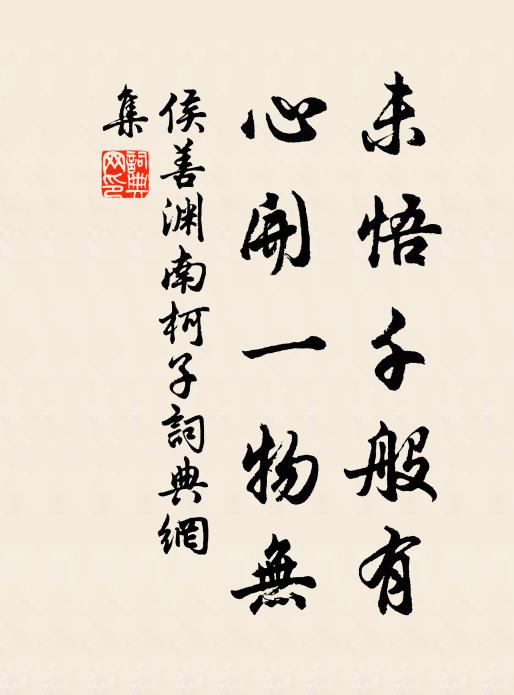 未悟千般有
心開一物無
侯善渊南柯子詞典網
集
詞典网印